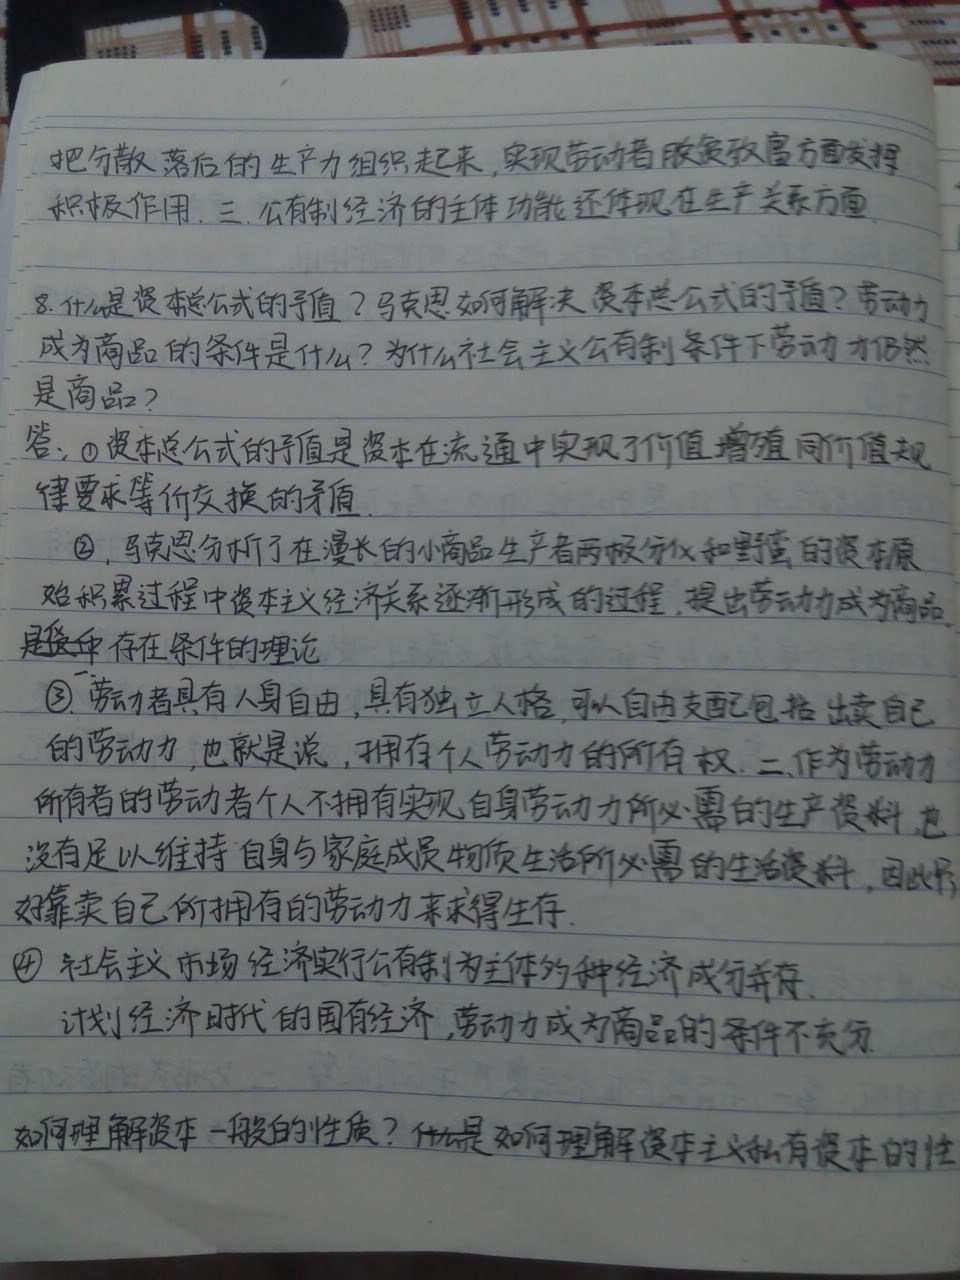 把分散落后的生产力组织起来,实现劳动者脱贫致富方面发挥
积极作用.三.公有制经济的主体功能还体现在生产关系方面.
8.什么是资本总公式的矛盾?马克思如何解决资本总公式的矛盾?劳动力
成为商品的条件是什么?为什么社会主义公有制条件下劳动力仍然
是商品?
答:①资本总公式的矛盾是资本在流通中实现了价值增殖同价值规
律要求等价交换的矛盾.
②,马克思分析了在漫长的小商品生产者两极分化和野蛮的资本原
始积累过程中资本主义经济关系逐渐形成的过程,提出劳动力成为商品
存在条件的理论
③一.劳动者具有人身自由,具有独立人格,可以自由支配包括出卖自己
的劳动力,也就是说,拥有个人劳动力的所有权.二、作为劳动力
所有者的劳动者个人不拥有实现自身劳动力所必需的生产资料,也
没有足以维持自身与家庭成员物质生活所必需的生活资料,因此只
好靠卖自己所拥有的劳动力来求得生存.
④ 社会主义市场经济实行公有制为主体多种经济成分并存.
计划经济时代的国有经济,劳动力成为商品的条件不充分.
如何理解资本一般的性质?什么是如何理解资本主义私有资本的性